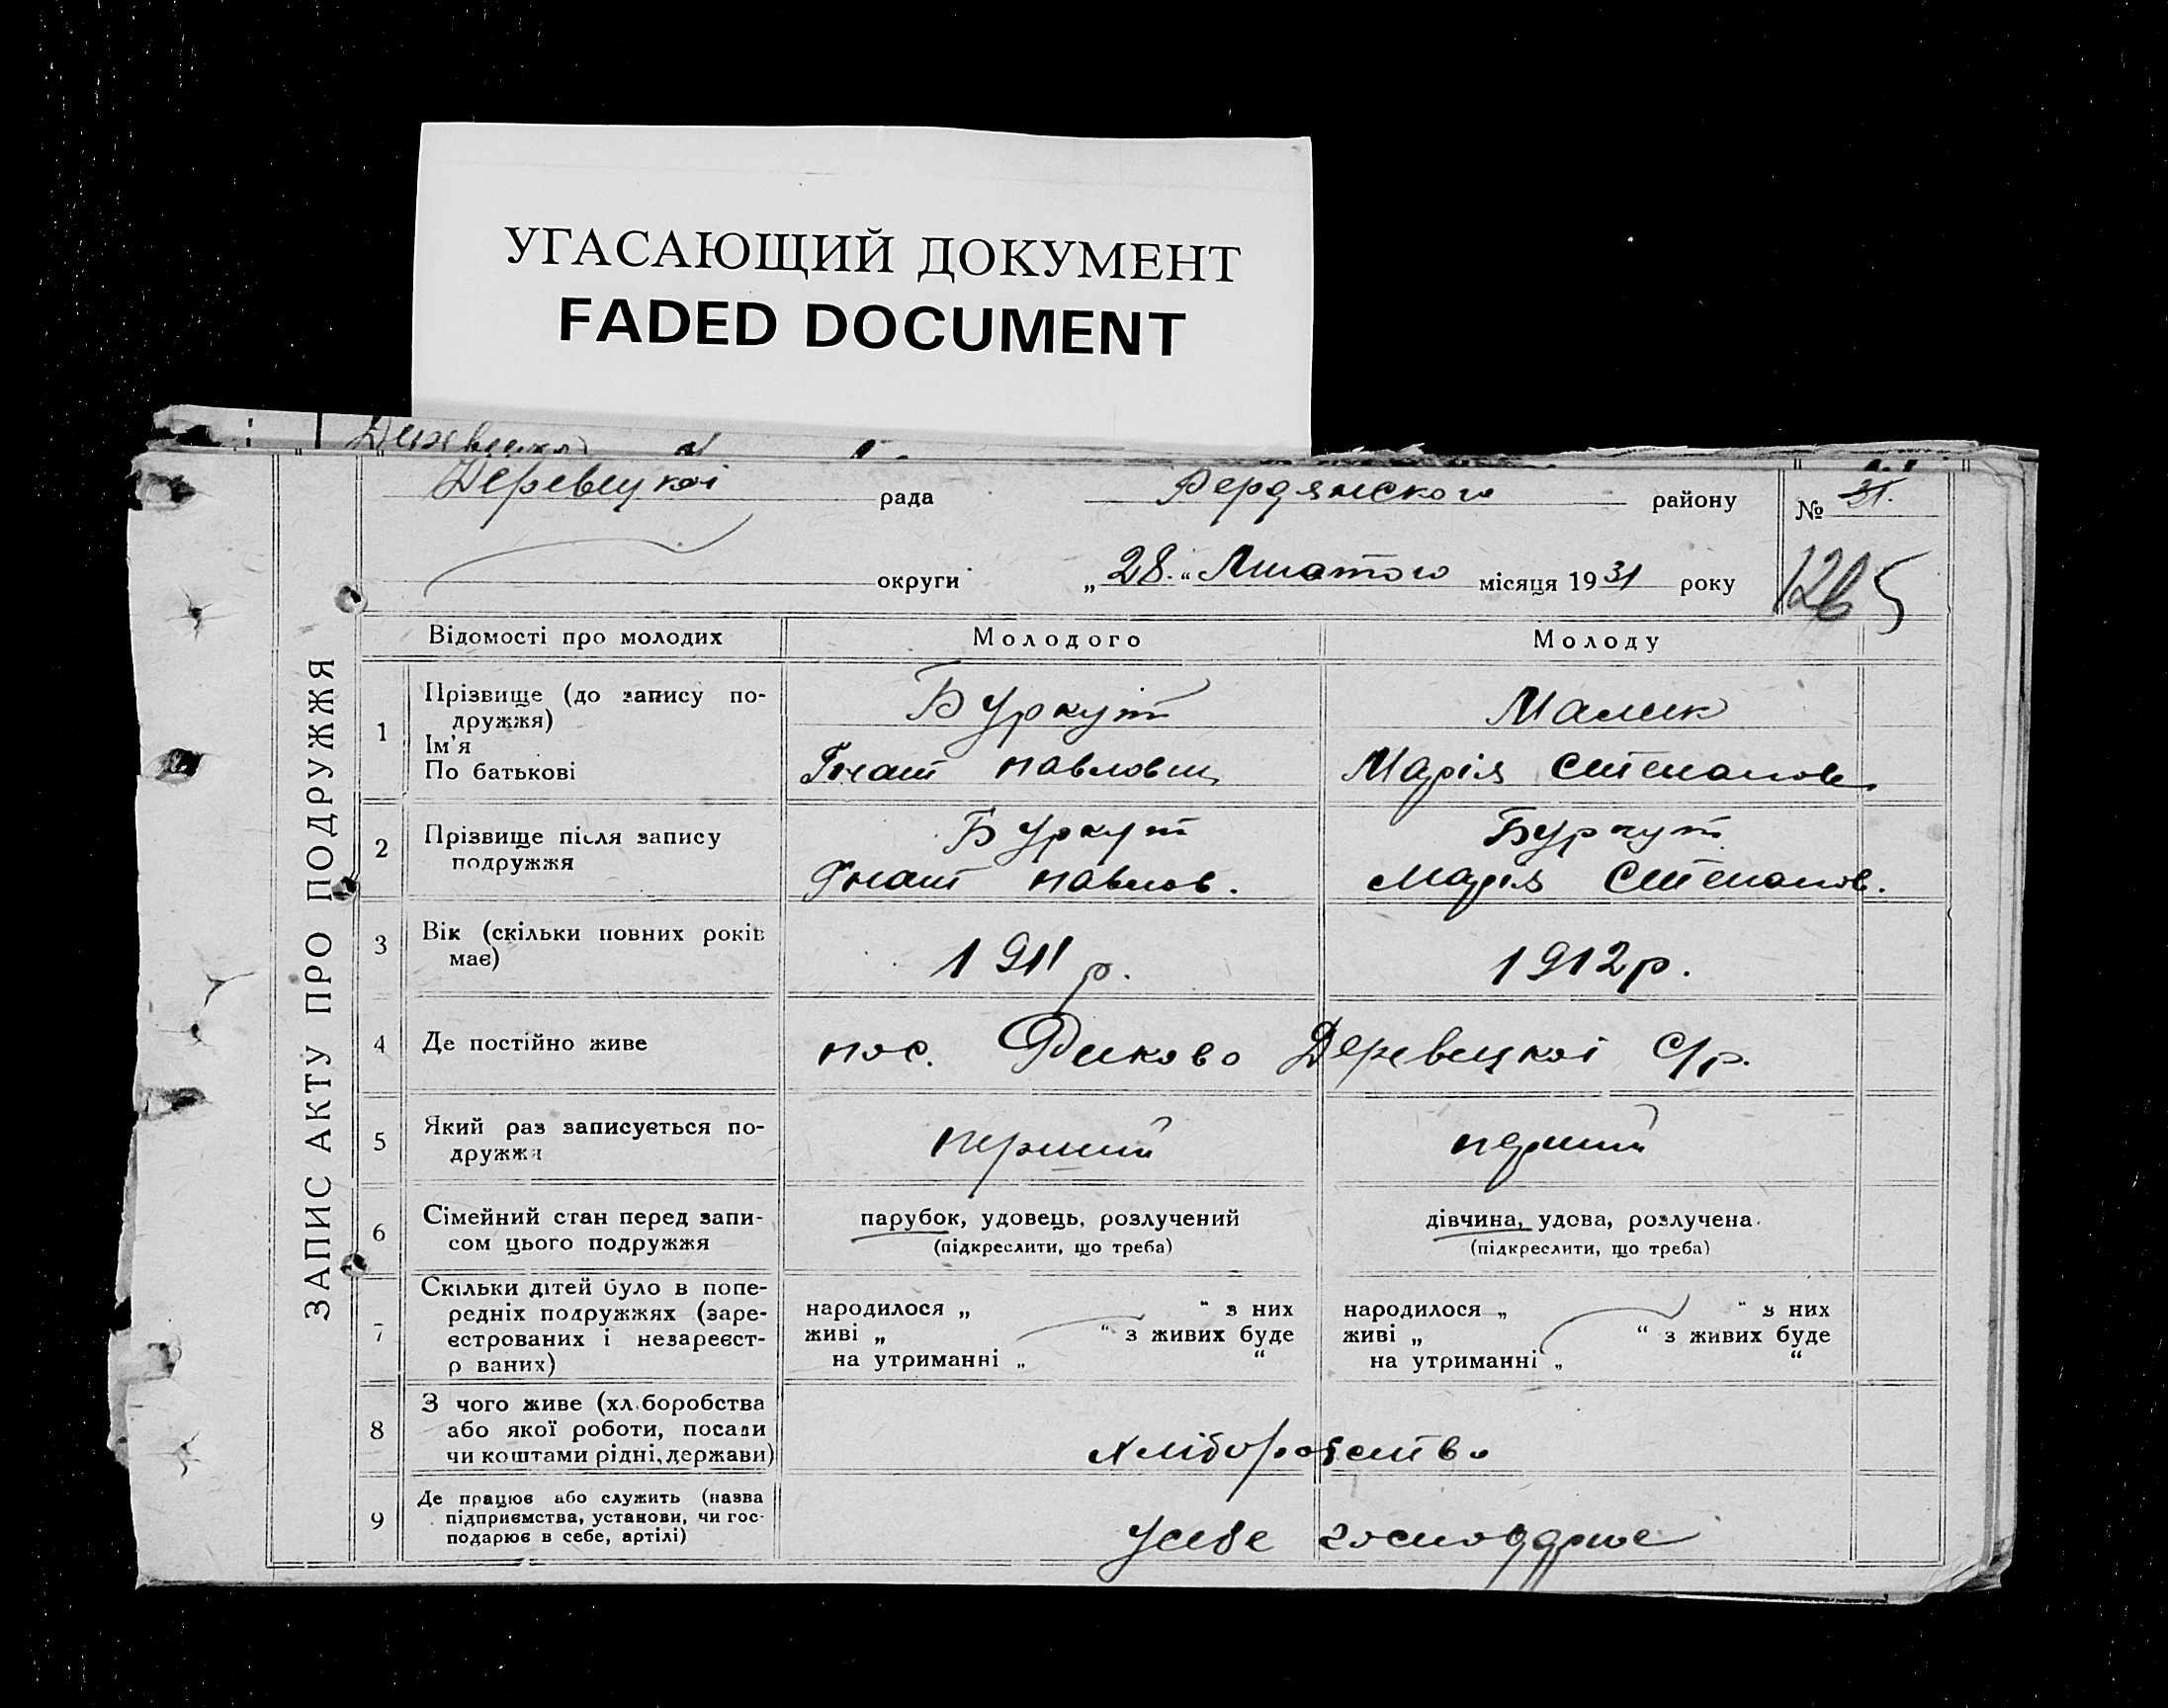 УГАСАЮЩИЙ ДОКУМЕНТ
FADED DOCUMENT
ЗАПИС АКТУ ПРО ПОДРУЖЖЯ
Деревецкоі рада
района
району № 31.
округи „28.“ Лютого місяця 1931 року
Відомості про молодих Молодого Молоду
1 Прізвище (до запису по-
дружжя)
Ім’я
По батькові
Буркут
Гнат Павлович
Малик
Марія Степанов.
2 Прізвище після запису
подружжя
Буркут
Гнат Павлов.
Буркут
Марія Степанов.
3 Вік (скільки повних років
має)
1911 р.
1912 р.
4 Де постійно живе
пос. Диково Деревецкоі С/р.
5 Який раз записується по-
дружжя
перший
перший
6 Сімейний стан перед запи-
сом цього подружжя
парубок, удовець, розлучений
(підкреслити, що треба)
дівчина, удова, розлучена.
(підкреслити, що треба)
7 Скільки дітей було в попе-
редніх подружжях (заре-
єстрованих і незареєст-
р ваних)
народилося „ “ з них
живі „ “ з живих буде
на утриманні „ “
народилося „ “ з них
живі „ “ з живих буде
на утриманні „ “
8 З чого живе (хл.боробства
або якої роботи, посади
чи коштами рідні, держави)
хліборобство
9 Де працює або служить (назва
підприємства, установи, чи гос-
подарює в себе, артілі)
У себе господарює